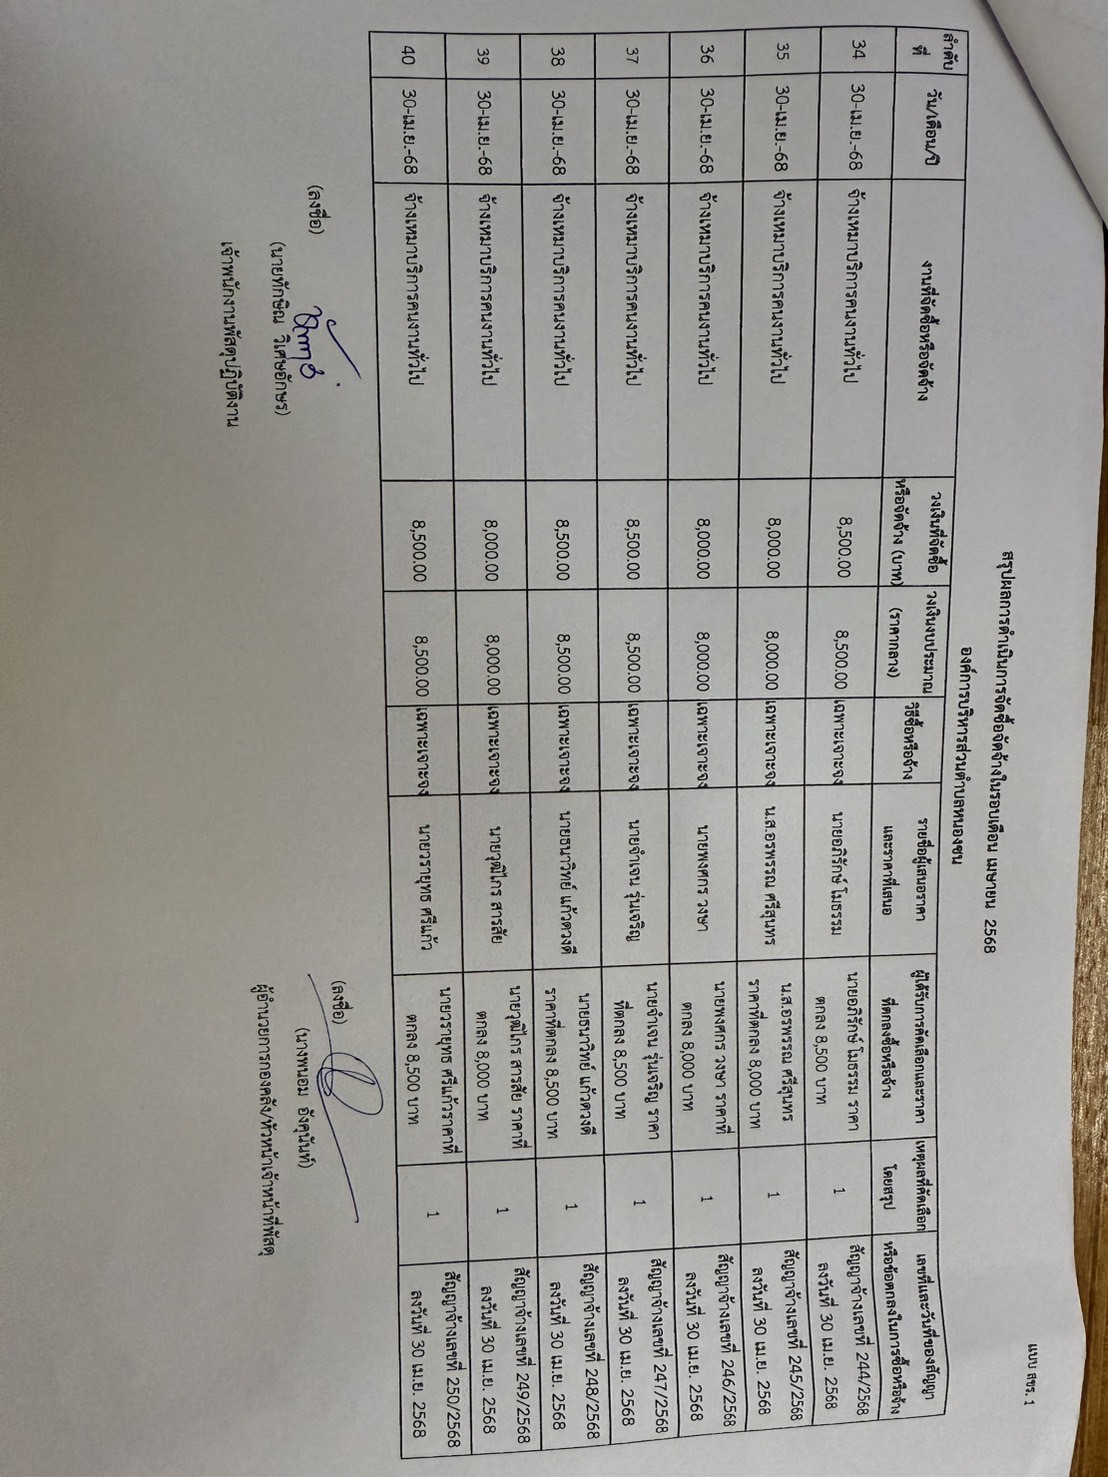 แบบ สขร. 1
สรุปผลการดำเนินการจัดซื้อจัดจ้างในรอบเดือน เมษายน 2568
องค์การบริหารส่วนตำบลหนองขน
ลำดับที่ วัน/เดือน/ปี งานที่จัดซื้อหรือจัดจ้าง วงเงินที่จัดซื้อหรือจัดจ้าง (บาท) วงเงินงบประมาณ (ราคากลาง) วิธีซื้อหรือจ้าง รายชื่อผู้เสนอราคาและราคาที่เสนอ ผู้ได้รับการคัดเลือกและราคาที่ตกลงซื้อหรือจ้าง เหตุผลที่คัดเลือกโดยสรุป เลขที่และวันที่ของสัญญาหรือข้อตกลงในการซื้อหรือจ้าง
34 30-เม.ย.-68 จ้างเหมาบริการคนงานทั่วไป 8,500.00 8,500.00 เฉพาะเจาะจง นายอภิรักษ์ โมธรรม นายอภิรักษ์ โมธรรม ราคาตกลง 8,500 บาท 1 สัญญาจ้างเลขที่ 244/2568 ลงวันที่ 30 เม.ย. 2568
35 30-เม.ย.-68 จ้างเหมาบริการคนงานทั่วไป 8,000.00 8,000.00 เฉพาะเจาะจง น.ส.อรพรรณ ศรีสุนทร น.ส.อรพรรณ ศรีสุนทร ราคาที่ตกลง 8,000 บาท 1 สัญญาจ้างเลขที่ 245/2568 ลงวันที่ 30 เม.ย. 2568
36 30-เม.ย.-68 จ้างเหมาบริการคนงานทั่วไป 8,000.00 8,000.00 เฉพาะเจาะจง นายพงศกร วงษา นายพงศกร วงษา ราคาที่ตกลง 8,000 บาท 1 สัญญาจ้างเลขที่ 246/2568 ลงวันที่ 30 เม.ย. 2568
37 30-เม.ย.-68 จ้างเหมาบริการคนงานทั่วไป 8,500.00 8,500.00 เฉพาะเจาะจง นายจำเจน รุ่นเจริญ นายจำเจน รุ่นเจริญ ราคาที่ตกลง 8,500 บาท 1 สัญญาจ้างเลขที่ 247/2568 ลงวันที่ 30 เม.ย. 2568
38 30-เม.ย.-68 จ้างเหมาบริการคนงานทั่วไป 8,500.00 8,500.00 เฉพาะเจาะจง นายธนาวิทย์ แก้วดวงดี นายธนาวิทย์ แก้วดวงดี ราคาที่ตกลง 8,500 บาท 1 สัญญาจ้างเลขที่ 248/2568 ลงวันที่ 30 เม.ย. 2568
39 30-เม.ย.-68 จ้างเหมาบริการคนงานทั่วไป 8,000.00 8,000.00 เฉพาะเจาะจง นายวุฒิไกร สารสัย นายวุฒิไกร สารสัย ราคาที่ตกลง 8,000 บาท 1 สัญญาจ้างเลขที่ 249/2568 ลงวันที่ 30 เม.ย. 2568
40 30-เม.ย.-68 จ้างเหมาบริการคนงานทั่วไป 8,500.00 8,500.00 เฉพาะเจาะจง นายวรายุทธ ศรีแก้ว นายวรายุทธ ศรีแก้วราคาที่ตกลง 8,500 บาท 1 สัญญาจ้างเลขที่ 250/2568 ลงวันที่ 30 เม.ย. 2568
(ลงชื่อ)
(นายทักษิณ วิเศษอักษร)
เจ้าพนักงานพัสดุปฏิบัติงาน
(ลงชื่อ)
(นางพนอม อังคุนันท์)
ผู้อำนวยการกองคลัง/หัวหน้าเจ้าหน้าที่พัสดุ